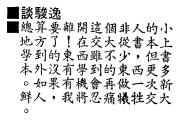 ■談駿逸
■總算要離開這個非人的小
地方了！在交大從書本上
學到的東西雖不少，但書
本外沒有學到的東西更多
。如果有機會再做一次新
鮮人，我將忍痛犧牲交大
。